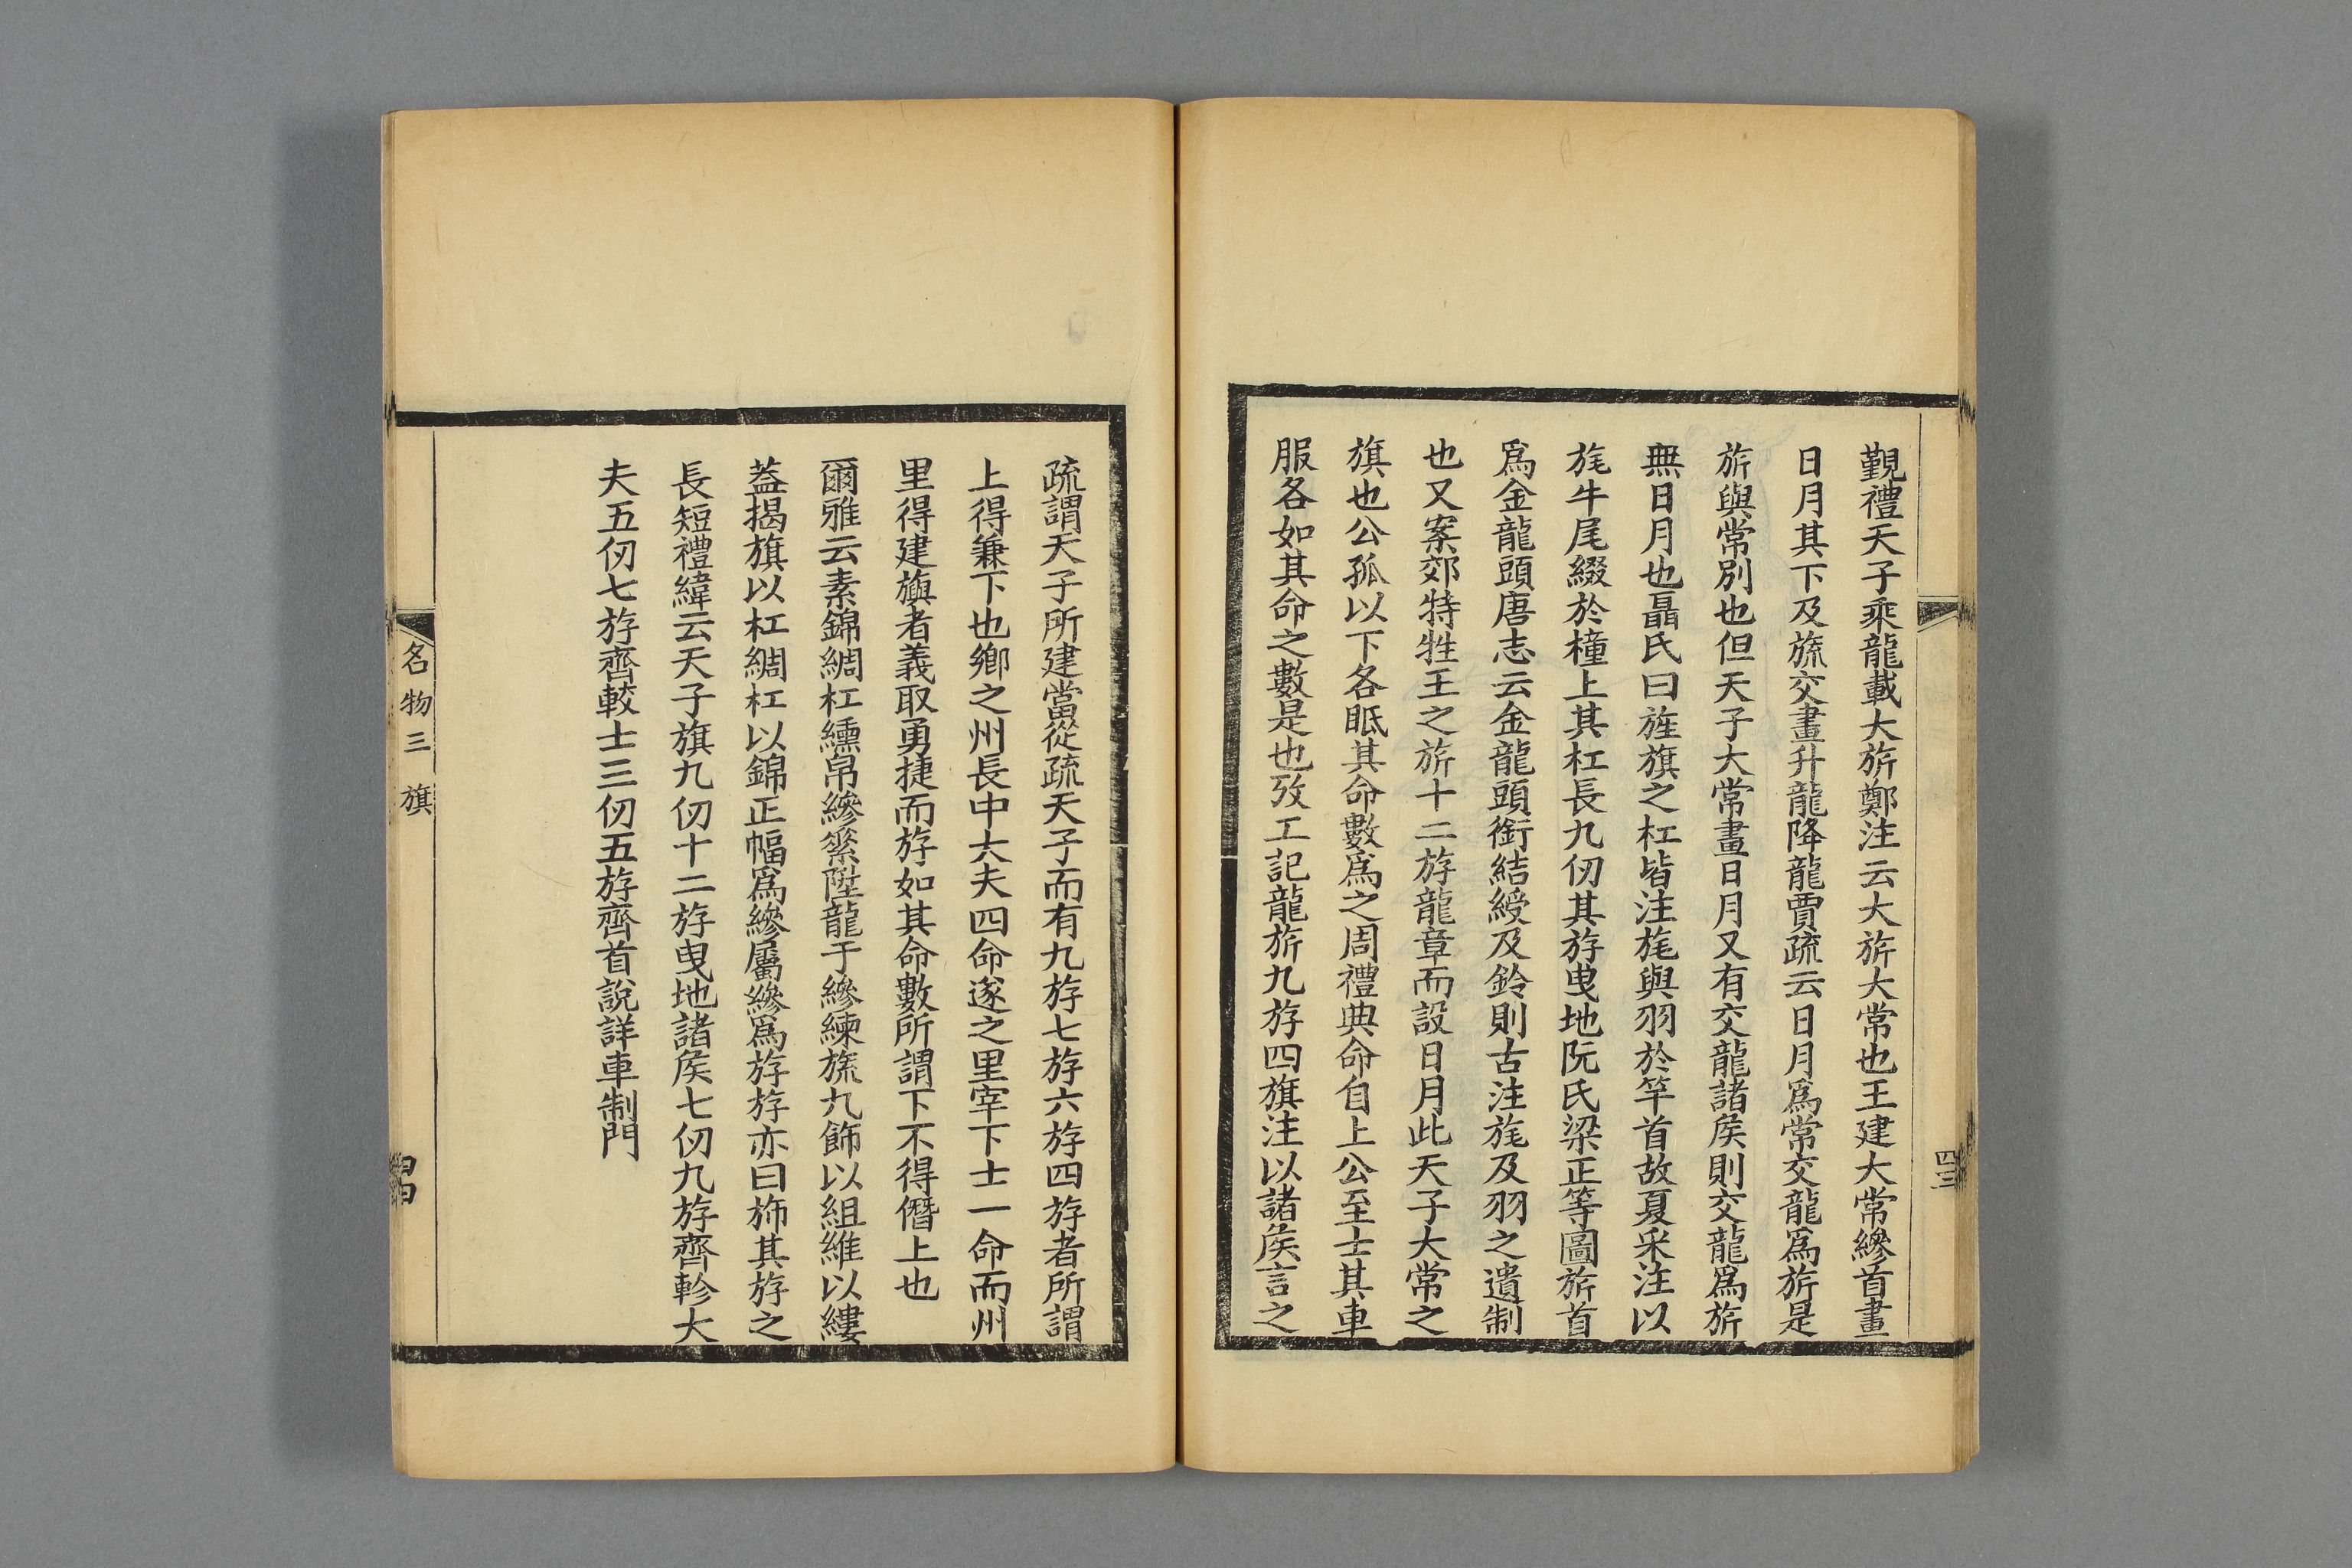 覲禮天子乘龍載大旂鄭注云大旂大常也王建大常縿首畫
日月其下及旒交畫升龍降龍賈疏云日月爲常交龍爲旂是
旂與常別也但天子大常畫日月又有交龍諸矦則交龍爲旂
無日月也聶氏曰旌旗之杠皆注旄與羽於竿首故夏采注以
旄牛尾綴於橦上其杠長九仞其斿曳地阮氏梁正等圖旂首
爲金龍頭唐志云金龍頭銜結綬及鈴則古注旄及羽之遺制
也又案郊特牲王之旂十二斿龍章而設日月此天子大常之
旗也公孤以下各眡其命數爲之周禮典命自上公至士其車
服各如其命之數是也攷工記龍旂九斿四旗注以諸矦言之
四三
疏謂天子所建當從疏天子而有九斿七斿六斿四斿者所謂
上得兼下也鄉之州長中大夫四命遂之里宰下士一命而州
里得建旟者義取勇捷而斿如其命數所謂下不得僭上也
爾雅云素錦綢杠纁帛縿素陞龍于縿練旒九飾以組維以縷
蓋揭旗以杠綢杠以錦正幅爲縿屬縿爲斿斿亦曰斾其斿之
長短禮緯云天子旗九仞十二斿曳地諸矦七仞九斿齊軫大
夫五仞七斿齊較士三仞五斿齊首說詳車制門
名物三 旗